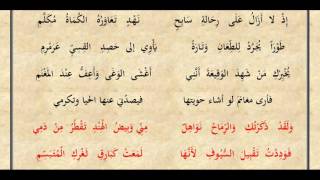 إِذْ لا أَزَالُ عَلَى رِحَالَةِ سَابِحٍ نَهْدٍ تَعَاوَرُهُ الكُمَاةُ مُكَلَّمِ
طَوْراً يُجَرَّدُ لِلطِّعَانِ وَتَارَةً يَأْوِي إِلَى حَصِدِ القِسِيِّ عَرَمْرَمِ
يُخْبِرْكِ مَنْ شَهِدَ الْوَقِيعَةَ أَنَّنِي أَغْشَى الْوَغَى وَأَعِفُّ عِنْدَ الْمَغْنَمِ
فأرى مغانم لو أشاء حويتها فيصدّني عنها الحيا وتكرمي
وَلَقَدْ ذَكَرْتُكِ وَالرِّمَاحُ نَوَاهِلٌ مِنِّي وَبِيضُ الْهِنْدِ تَقْطُرُ مِنْ دَمِي
فَوَدِدْتُ تَقْبِيلَ السُّيُوفِ لأَنَّهَا لَمَعَتْ كَبَارِقِ ثَغْرِكِ الْمُتَبَسِّمِ